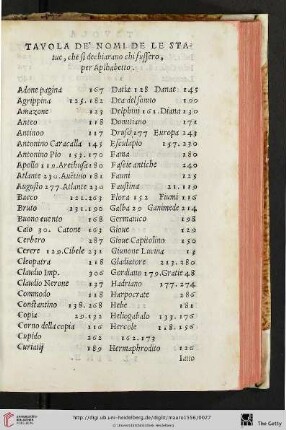 TAVOLA DE' NOMI DE LE STA-
tue, che si dechiarano chi fussero,
per Alphabetto.
Adone pagina 167 Daria 128 Danae 145
Agrippina 125.182 Dea del sonno 100
Amazone 123 Delphin 161. Diana 230
Anteo 118 Domitiano 171
Antinoo 117 Drusa 177 Europa 243
Antonino Caracalla 145 Esculapio 157.230
Antonino Pio 153.170 Fama 280
Apollo 119. Arethusa 180 Fascie antiche 240
Atlante 230. Auentino 181 Fauni 123
Augusto 277. Atlante 230 Faustina 21.119
Bacco 121.263 Flora 152 Fiumi 116
Bruto 231.196 Galba 29 Ganimede 214
Buono euento 168 Germanico 298
Caio 30. Catone 163 Gioue 129
Cerbero 287 Gioue Capitolino 150
Cerere 129. Cibele 231 Giunone Lucina 13
Cleopatra 118 Gladiatore 213.280
Claudio Imp. 306 Gordiano 179. Gratie 48
Claudio Nerone 137 Hadriano 177.274
Commodo 118 Harpocrate 286
Constantino 138.268 Hebe 181
Copia 29.132 Heliogabalo 133.176
Corno della copia 116 Hercole 118.156
Cupido 262 162.173
Curiatij 189 Hermaphrodito 126
Iano
http://digi.ub.uni-heidelberg.de/diglit/mauro1556/0027
© Universitätsbibliothek Heidelberg
The Getty